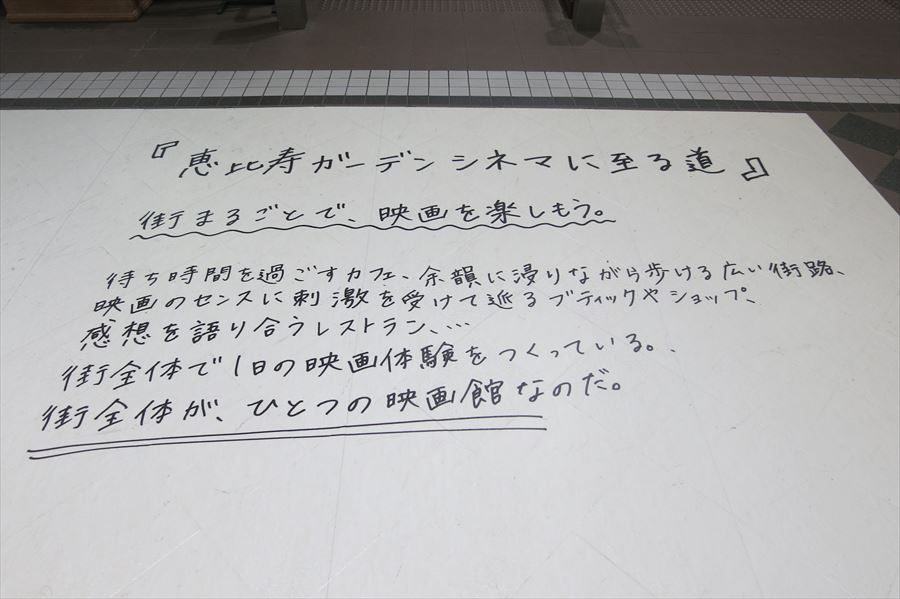 『恵比寿ガーデンシネマに至る道』
街まるごとで、映画を楽しもう。
待ち時間を過ごすカフェ、余韻に浸りながら歩ける広い街路、
映画のセンスに刺激を受けて巡るブティックやショップ、
感想を語り合うレストラン、…
街全体で1日の映画体験をつくっている。
街全体が、ひとつの映画館なのだ。